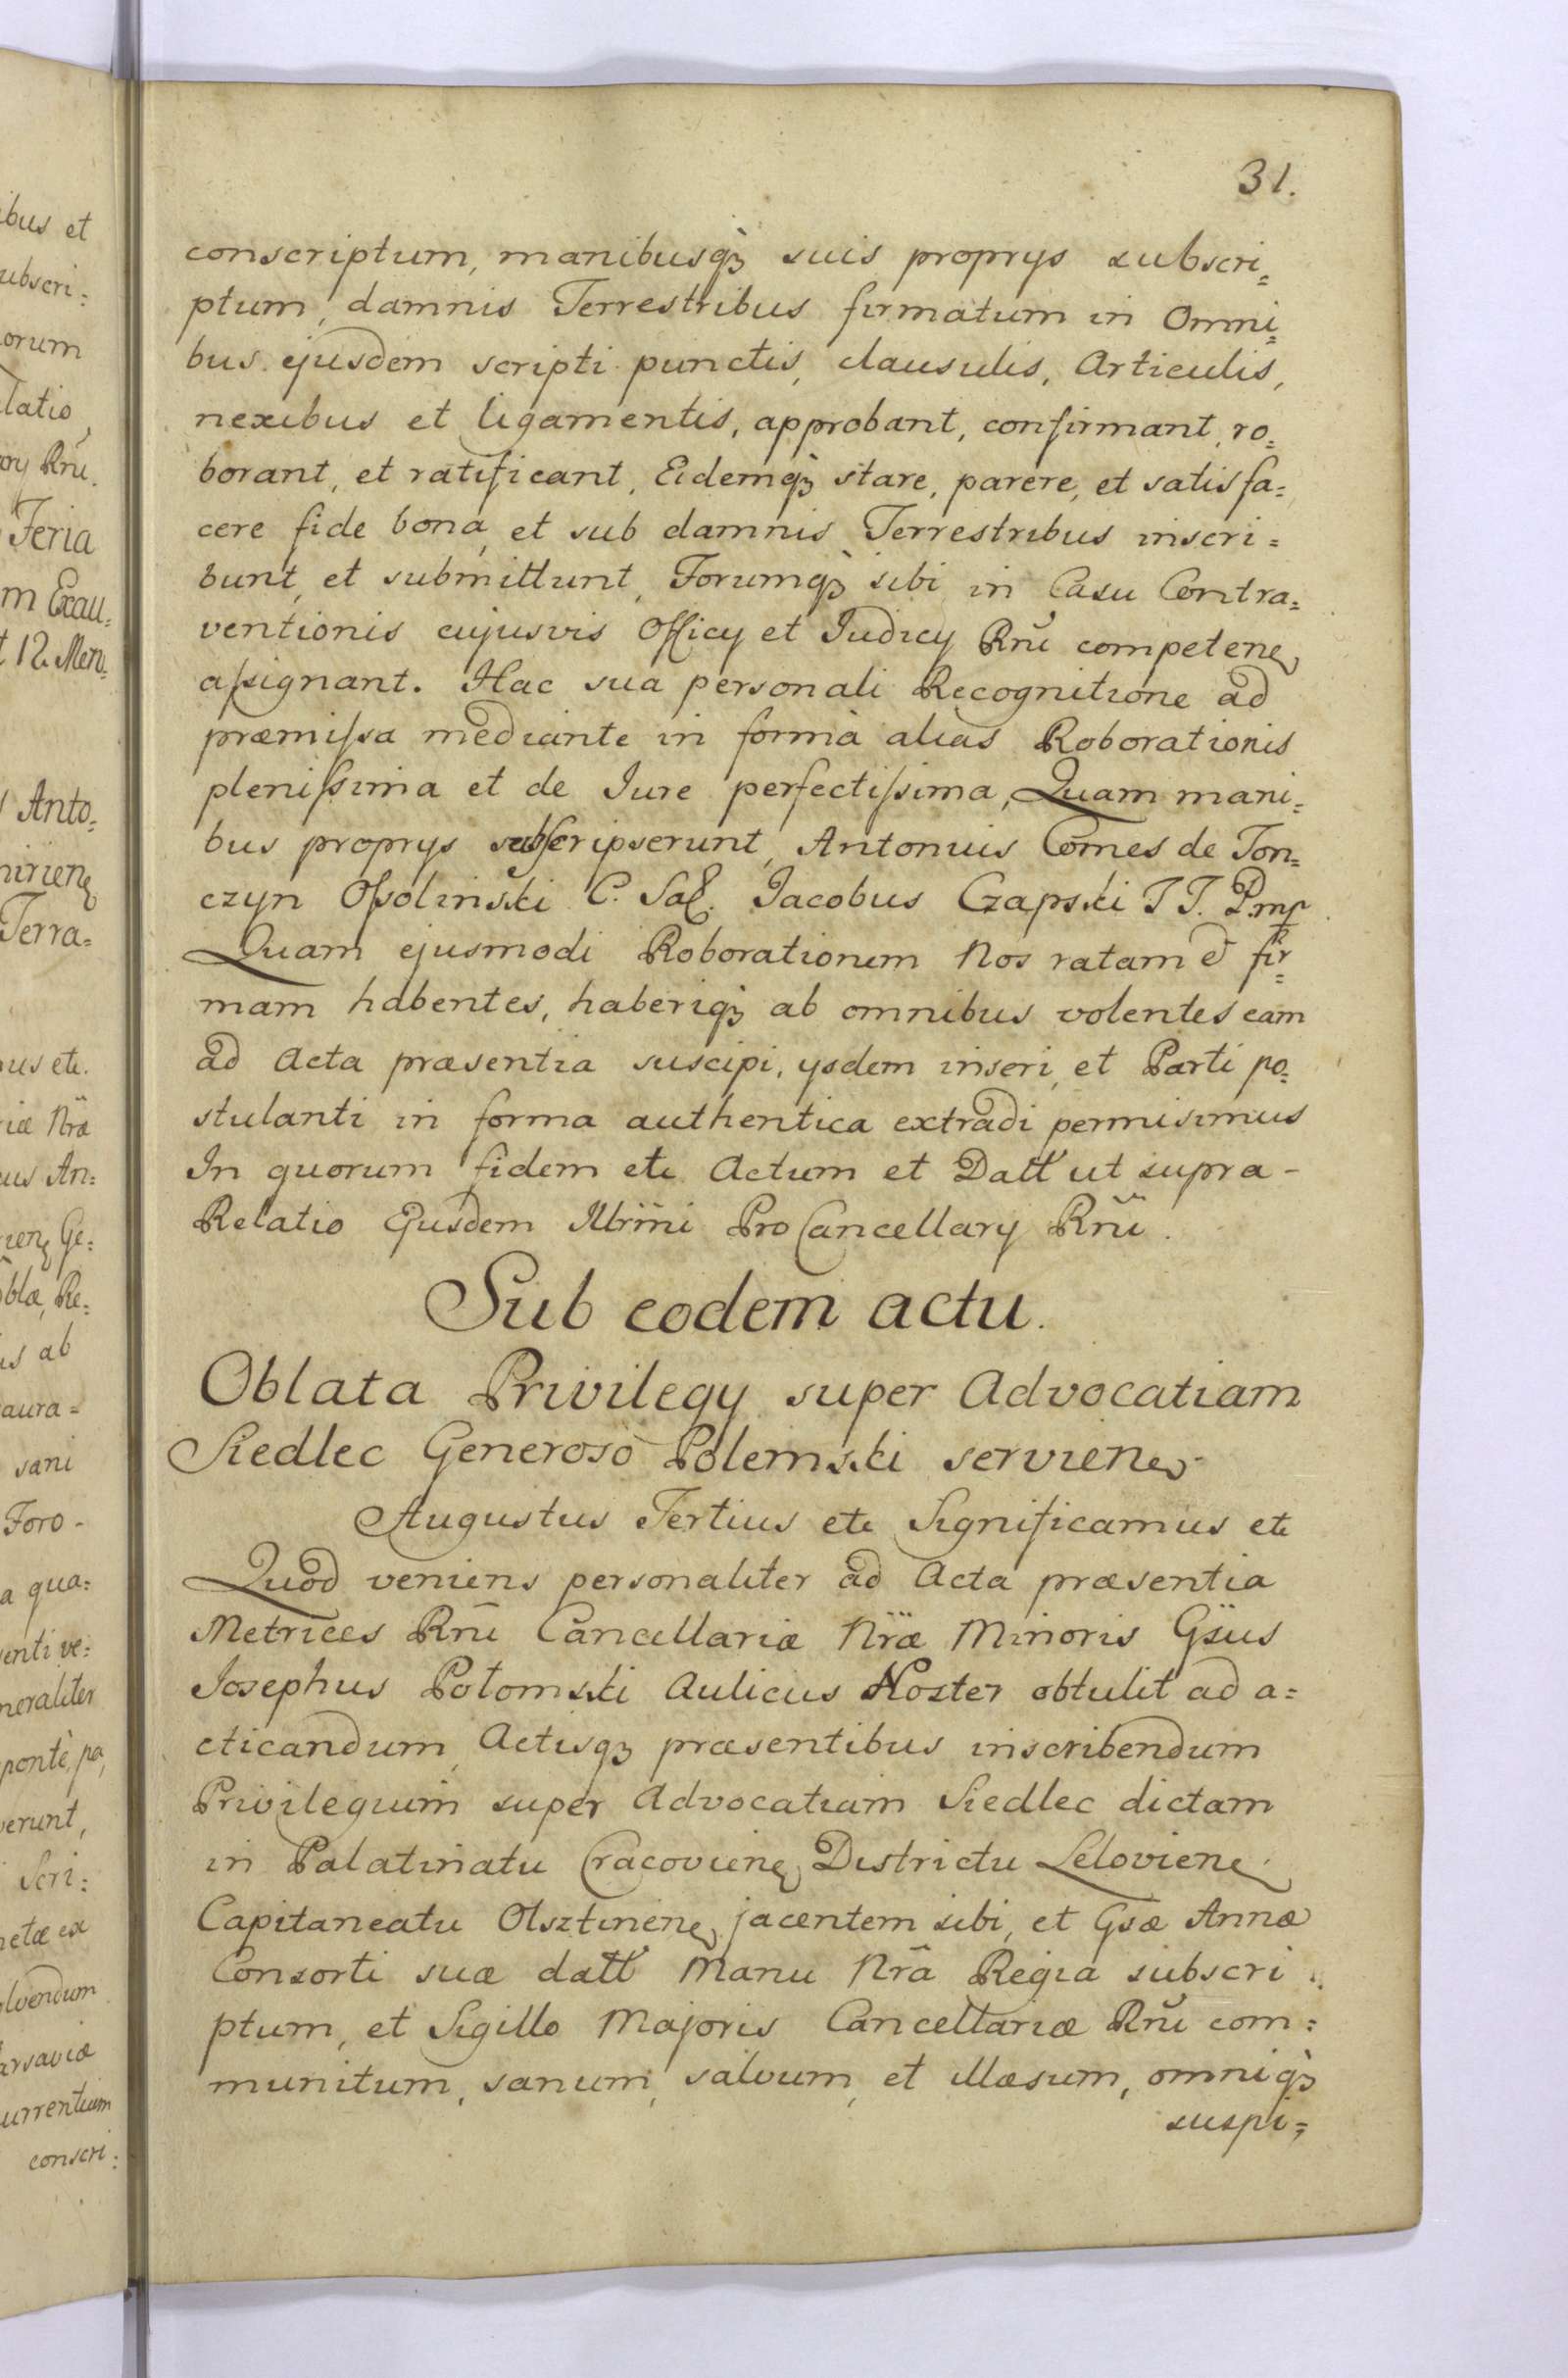 31.
conscriptum, manibusqꝫ suis proprys subscri=
ptum, damnis Terrestribus firmatum in Omni=
bus ejusdem scripti punctis, clausulis, Articulis,
nexibus et ligamentis, approbant, confirmant, ro=
borant, et ratificant, Eidemqꝫ stare, parere, et satisfa=
cere fide bona, et sub damnis Terrestribus inscri=
bunt, et submittunt, Forumqꝫ sibi in Casu Contra=
ventionis cujusvis Officy et Judicy Rnĩ competenꝫ
aſsignant. Hac sua personali Recognitione ad
præmiſsa mediante in formà alias Roborationis
pleniſsima et de Jure perfectiſsima, Quam mani=
bus proprys subscripserunt, Antonius Comes de Ton=
czyn Oſsolinski C. Sal. Jacobus Czapski T T. P.mp
Quam ejusmodi Roborationem Nos ratam & fir=
mam habentes, haberiqꝫ ab omnibus volentes eam
ad Acta præsentia suscipi, ysdem inseri, et Parti po=
stulanti in forma authentica extradi permisimus
In quorum fidem etc Actum et Datt ut supra -
Relatio Ejusdem Illrm̃i ProCancellary Rnĩ.
Sub eodem actu.
Oblata Privilegy super Advocatiam
Siedlec Generoso Polemski servienꝫ
Augustus Tertius etc Significamus etc
Quod veniens personaliter ad Acta præsentia
Metrices Rnĩ Cancellariæ Nr̃æ Minoris Gs̃us
Josephus Połomski Aulicus Noster obtulit ad a=
cticandum, Actisqꝫ præsentibus inscribendum
Privilegium super Advocatiam Siedlec dictam
in Palatinatu Cracovienꝫ Districtu Lelovienꝫ
Capitaneatu Olsztinenꝫ jacentem sibi, et Gsæ Annæ
Consorti suæ datt Manu Nr̃a Regia subscri=
ptum, et Sigillo Majoris Cancellariæ Rnĩ com=
munitum, sanum, salvum, et illæsum, omniqꝫ
suspi=